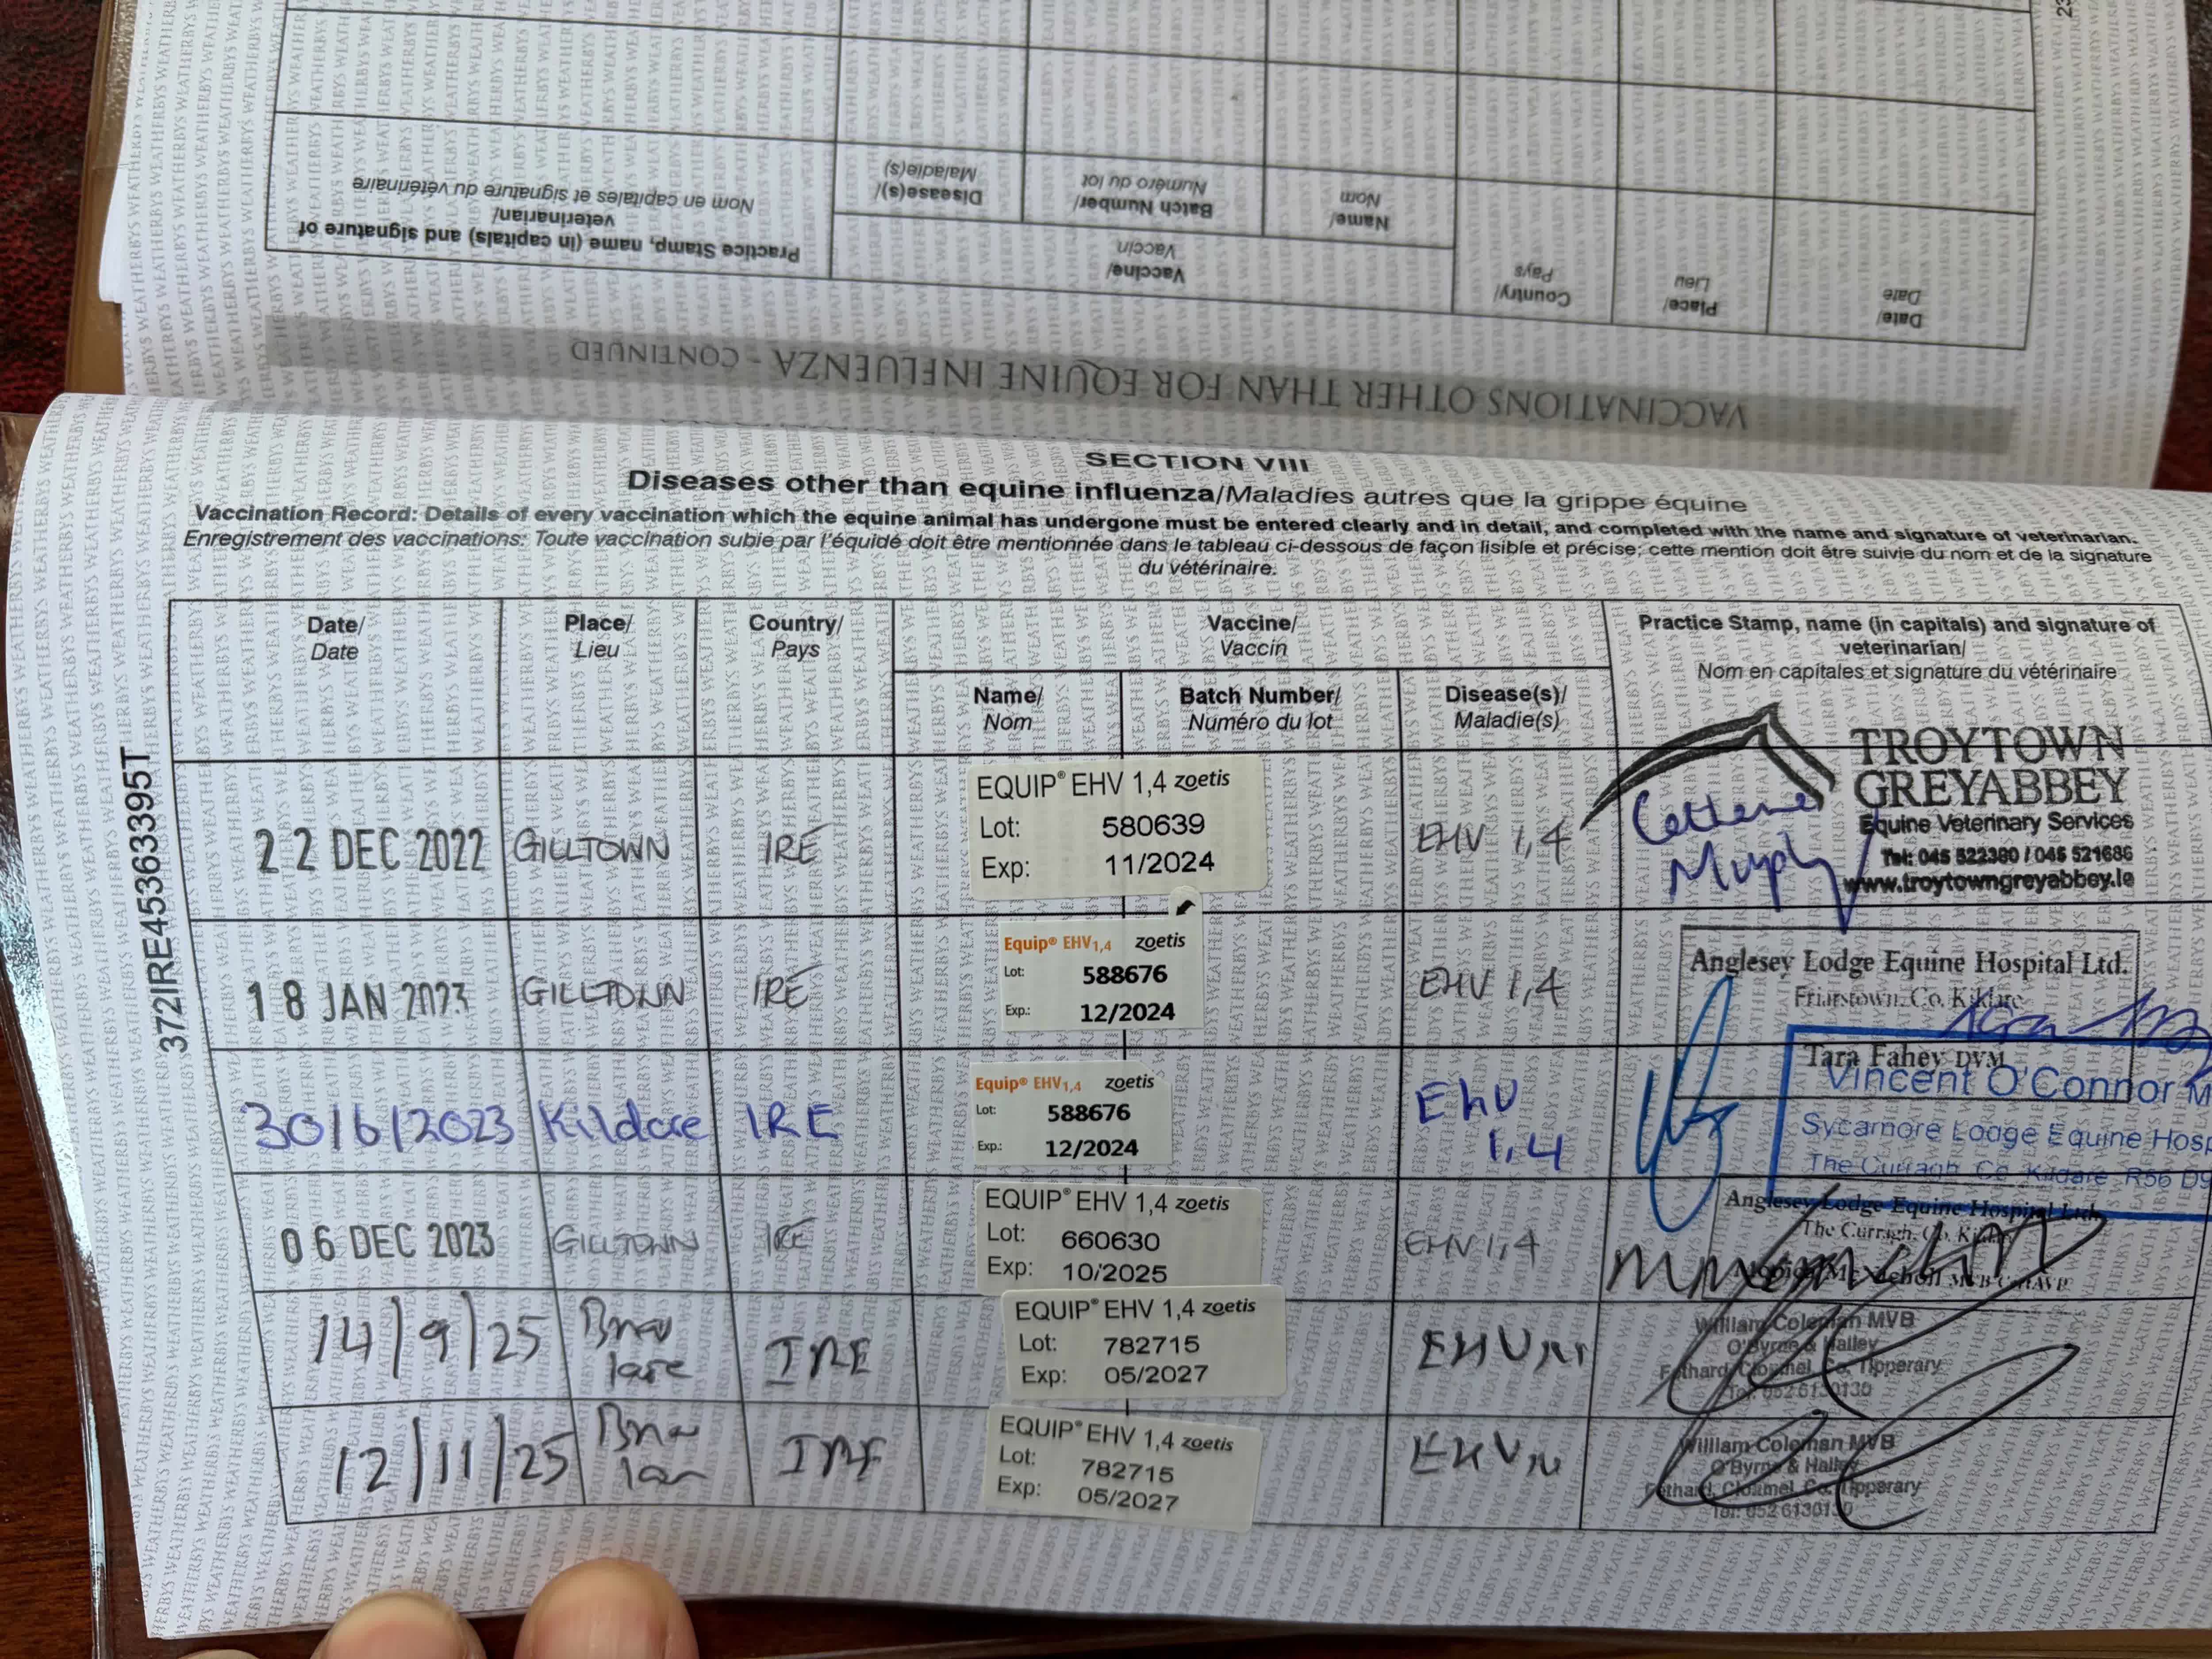 VACCINATIONS OTHER THAN EQUINE INFLUENZA - CONTINUED
Date/
Date
Place/
Lieu
Country/
Pays
Vaccine/
Vaccin
Name/
Nom
Batch Number/
Numéro du lot
Disease(s)/
Maladie(s)
Practice Stamp, name (in capitals) and signature of
veterinarian/
Nom en capitales et signature du vétérinaire
SECTION VIII
Diseases other than equine influenza/Maladies autres que la grippe équine
Vaccination Record: Details of every vaccination which the equine animal has undergone must be entered clearly and in detail, and completed with the name and signature of veterinarian.
Enregistrement des vaccinations: Toute vaccination subie par l'équidé doit être mentionnée dans le tableau ci-dessous de façon lisible et précise; cette mention doit être suivie du nom et de la signature
du vétérinaire.
372IRE45363395T
Date/
Date
Place/
Lieu
Country/
Pays
Vaccine/
Vaccin
Name/
Nom
Batch Number/
Numéro du lot
Disease(s)/
Maladie(s)
Practice Stamp, name (in capitals) and signature of
veterinarian/
Nom en capitales et signature du vétérinaire
22 DEC 2022
GILLTOWN
IRE
EQUIP® EHV 1,4 zoetis
Lot: 580639
Exp: 11/2024
EHV 1,4
Murphy
TROYTOWN
GREYABBEY
Equine Veterinary Services
Tel: 045 522380 / 045 521686
www.troytowngreyabbey.ie
18 JAN 2023
GILLTOWN
IRE
Equip® EHV1,4 zoetis
Lot: 588676
Exp.: 12/2024
EHV 1,4
Anglesey Lodge Equine Hospital Ltd.
Friarstown, Co. Kildare
Tara Fahey DVM
30/6/2023
Kildare
IRE
Equip® EHV1,4 zoetis
Lot: 588676
Exp.: 12/2024
EHV
1,4
Vincent O'Connor M
Sycamore Lodge Equine Hosp
The Curragh, Co. Kildare R56 D9
06 DEC 2023
GILLTOWN
IRE
EQUIP® EHV 1,4 zoetis
Lot: 660630
Exp: 10/2025
EHV 1,4
Anglesey Lodge Equine Hospital Ltd.
The Curragh, Co. Kildare
14/9/25
IRE
EQUIP® EHV 1,4 zoetis
Lot: 782715
Exp: 05/2027
William Coleman MVB
O'Byrne & Halley
Fethard, Clonmel, Co. Tipperary
Tel: 052 6130130
12/11/25
IRE
EQUIP® EHV 1,4 zoetis
Lot: 782715
Exp: 05/2027
William Coleman MVB
O'Byrne & Halley
Fethard, Clonmel, Co. Tipperary
Tel: 052 6130130